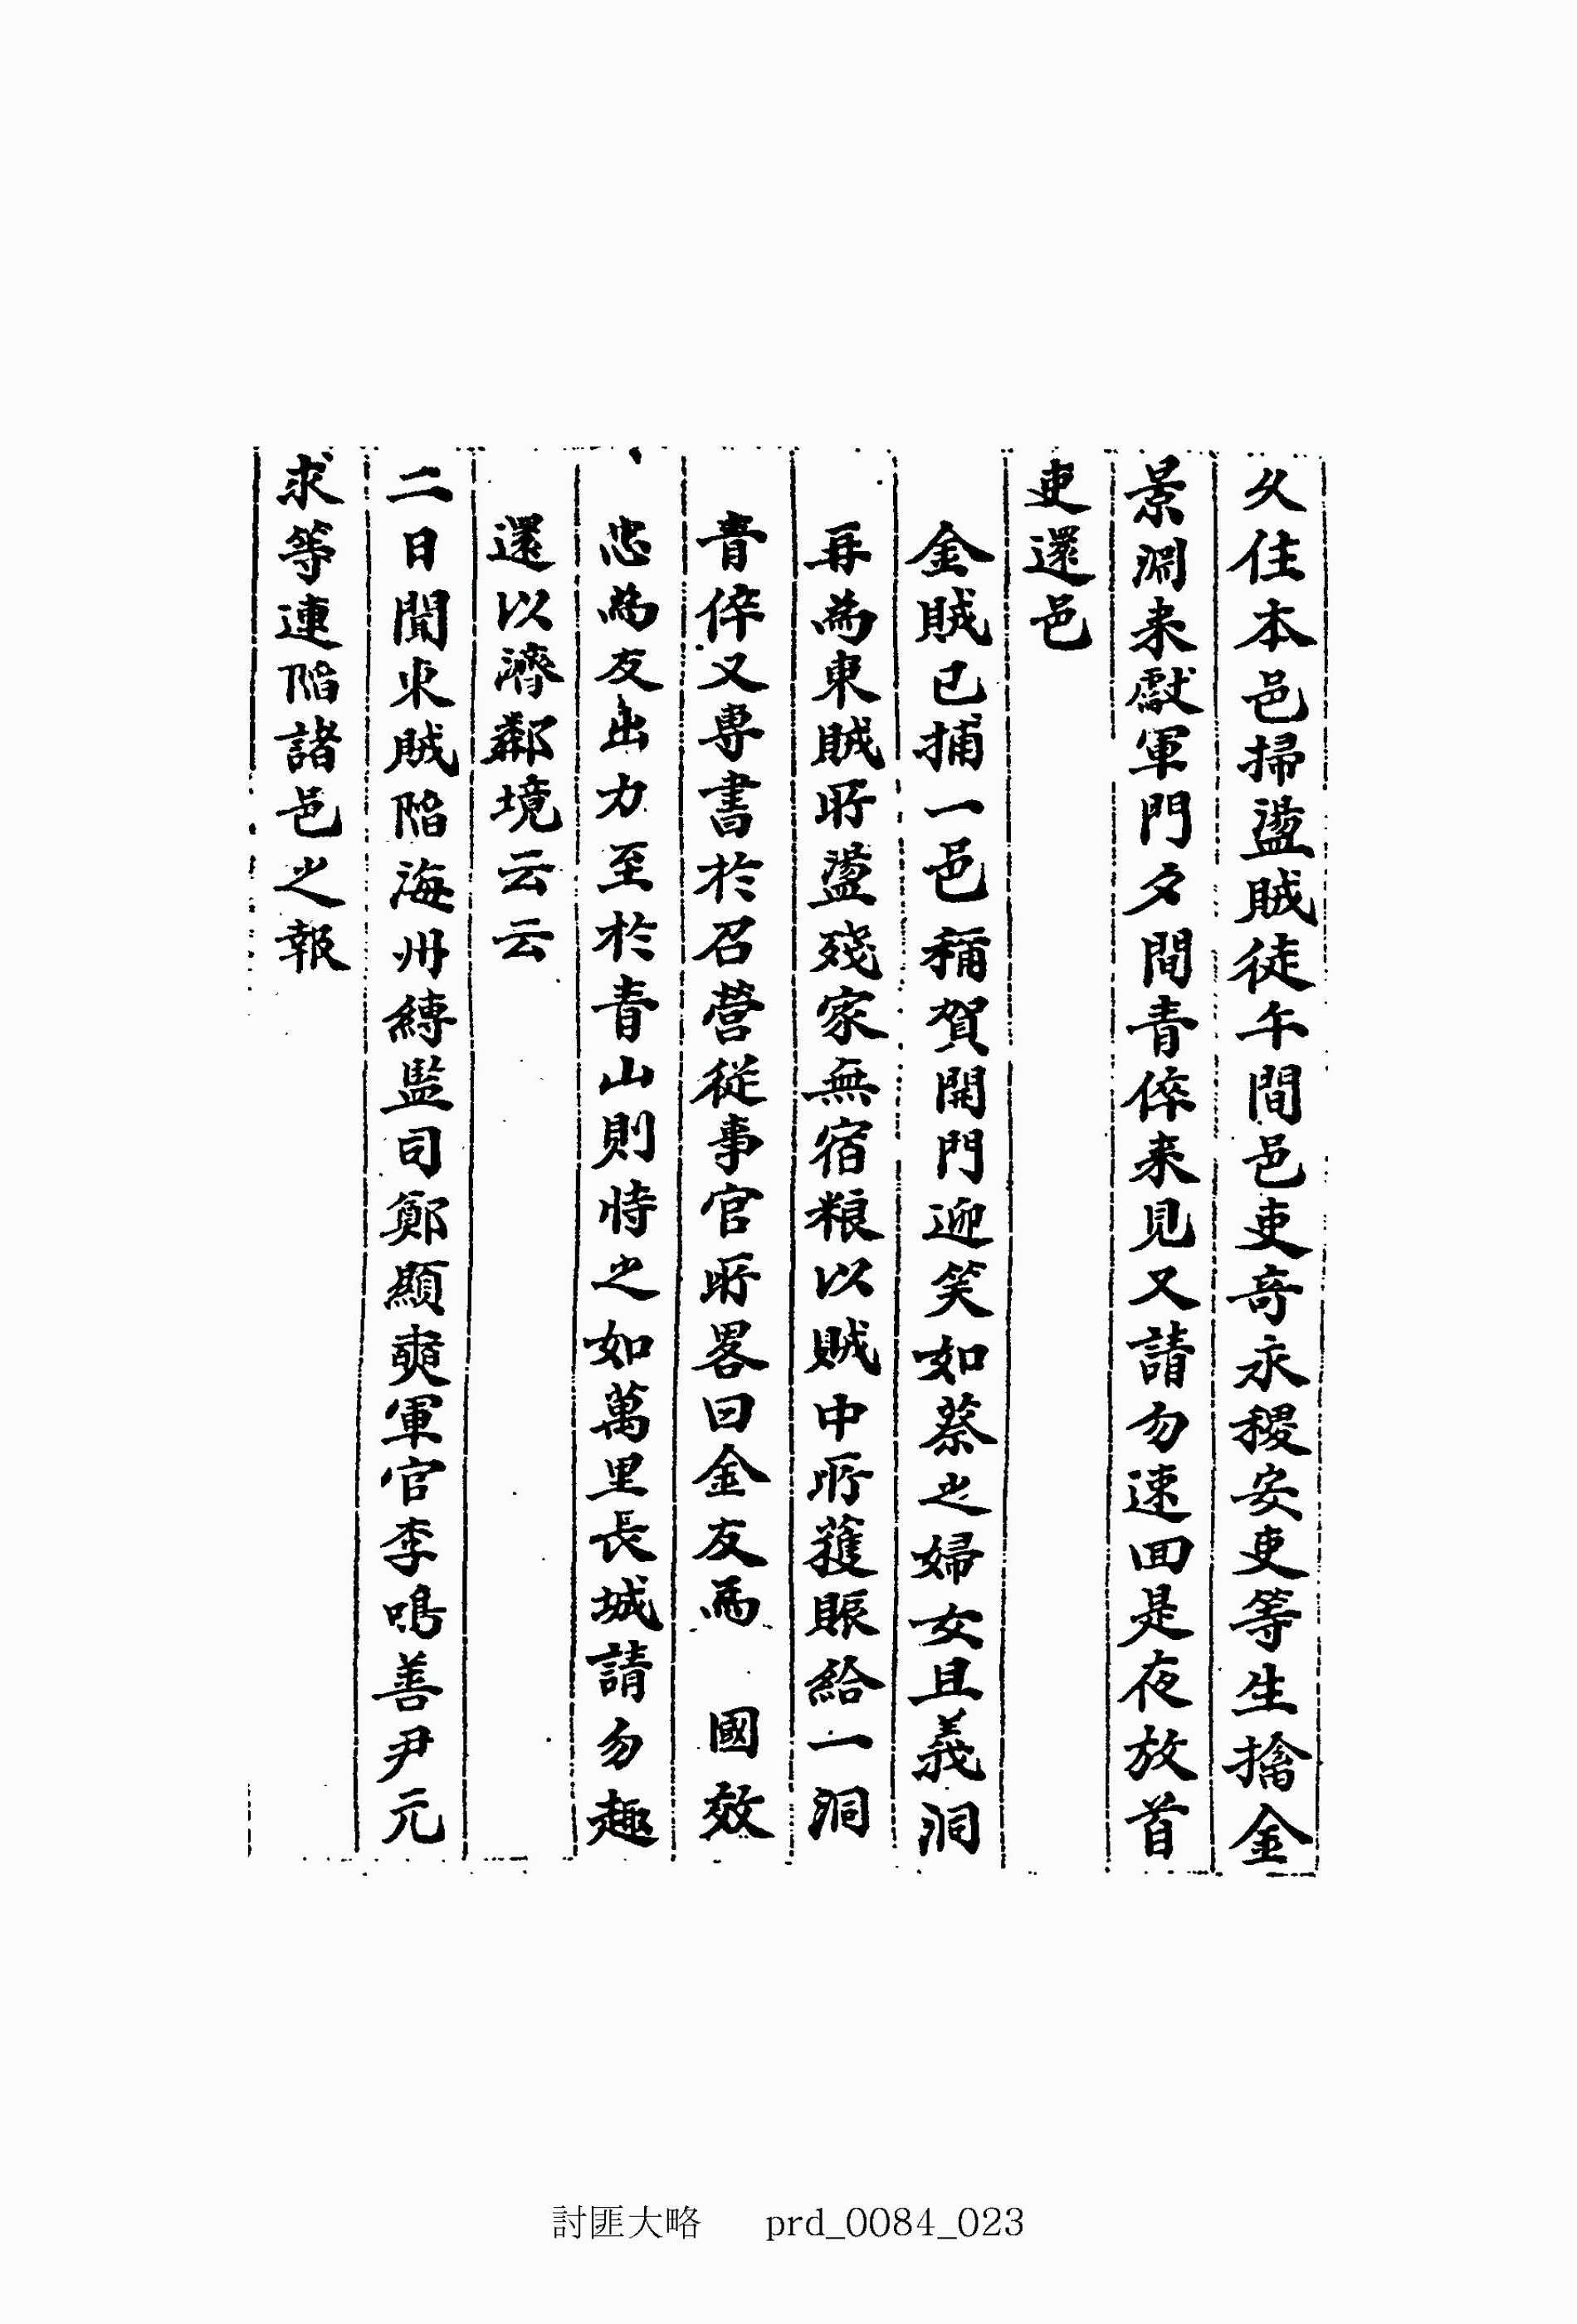 久住本邑掃盪賊徒午間邑吏奇永稷安吏等生擒金
景淵来獻軍門夕間青倅来見又請勿速回是夜放首
吏還邑
金賊已捕一邑稱賀開門迎笑如蔡之婦女且義洞
再爲東賊所盪殘家無宿粮以賊中所獲賑給一洞
青倅又専書於召營從事官所畧曰金友爲 國效
忠爲友出力至於青山則恃之如萬里長城請勿趣
還以濟鄰境云云
二日聞東賊陷海州縛監司鄭顯奭軍官李鳴善尹元
求等連陷諸邑之報
討匪大略 prd_0084_023